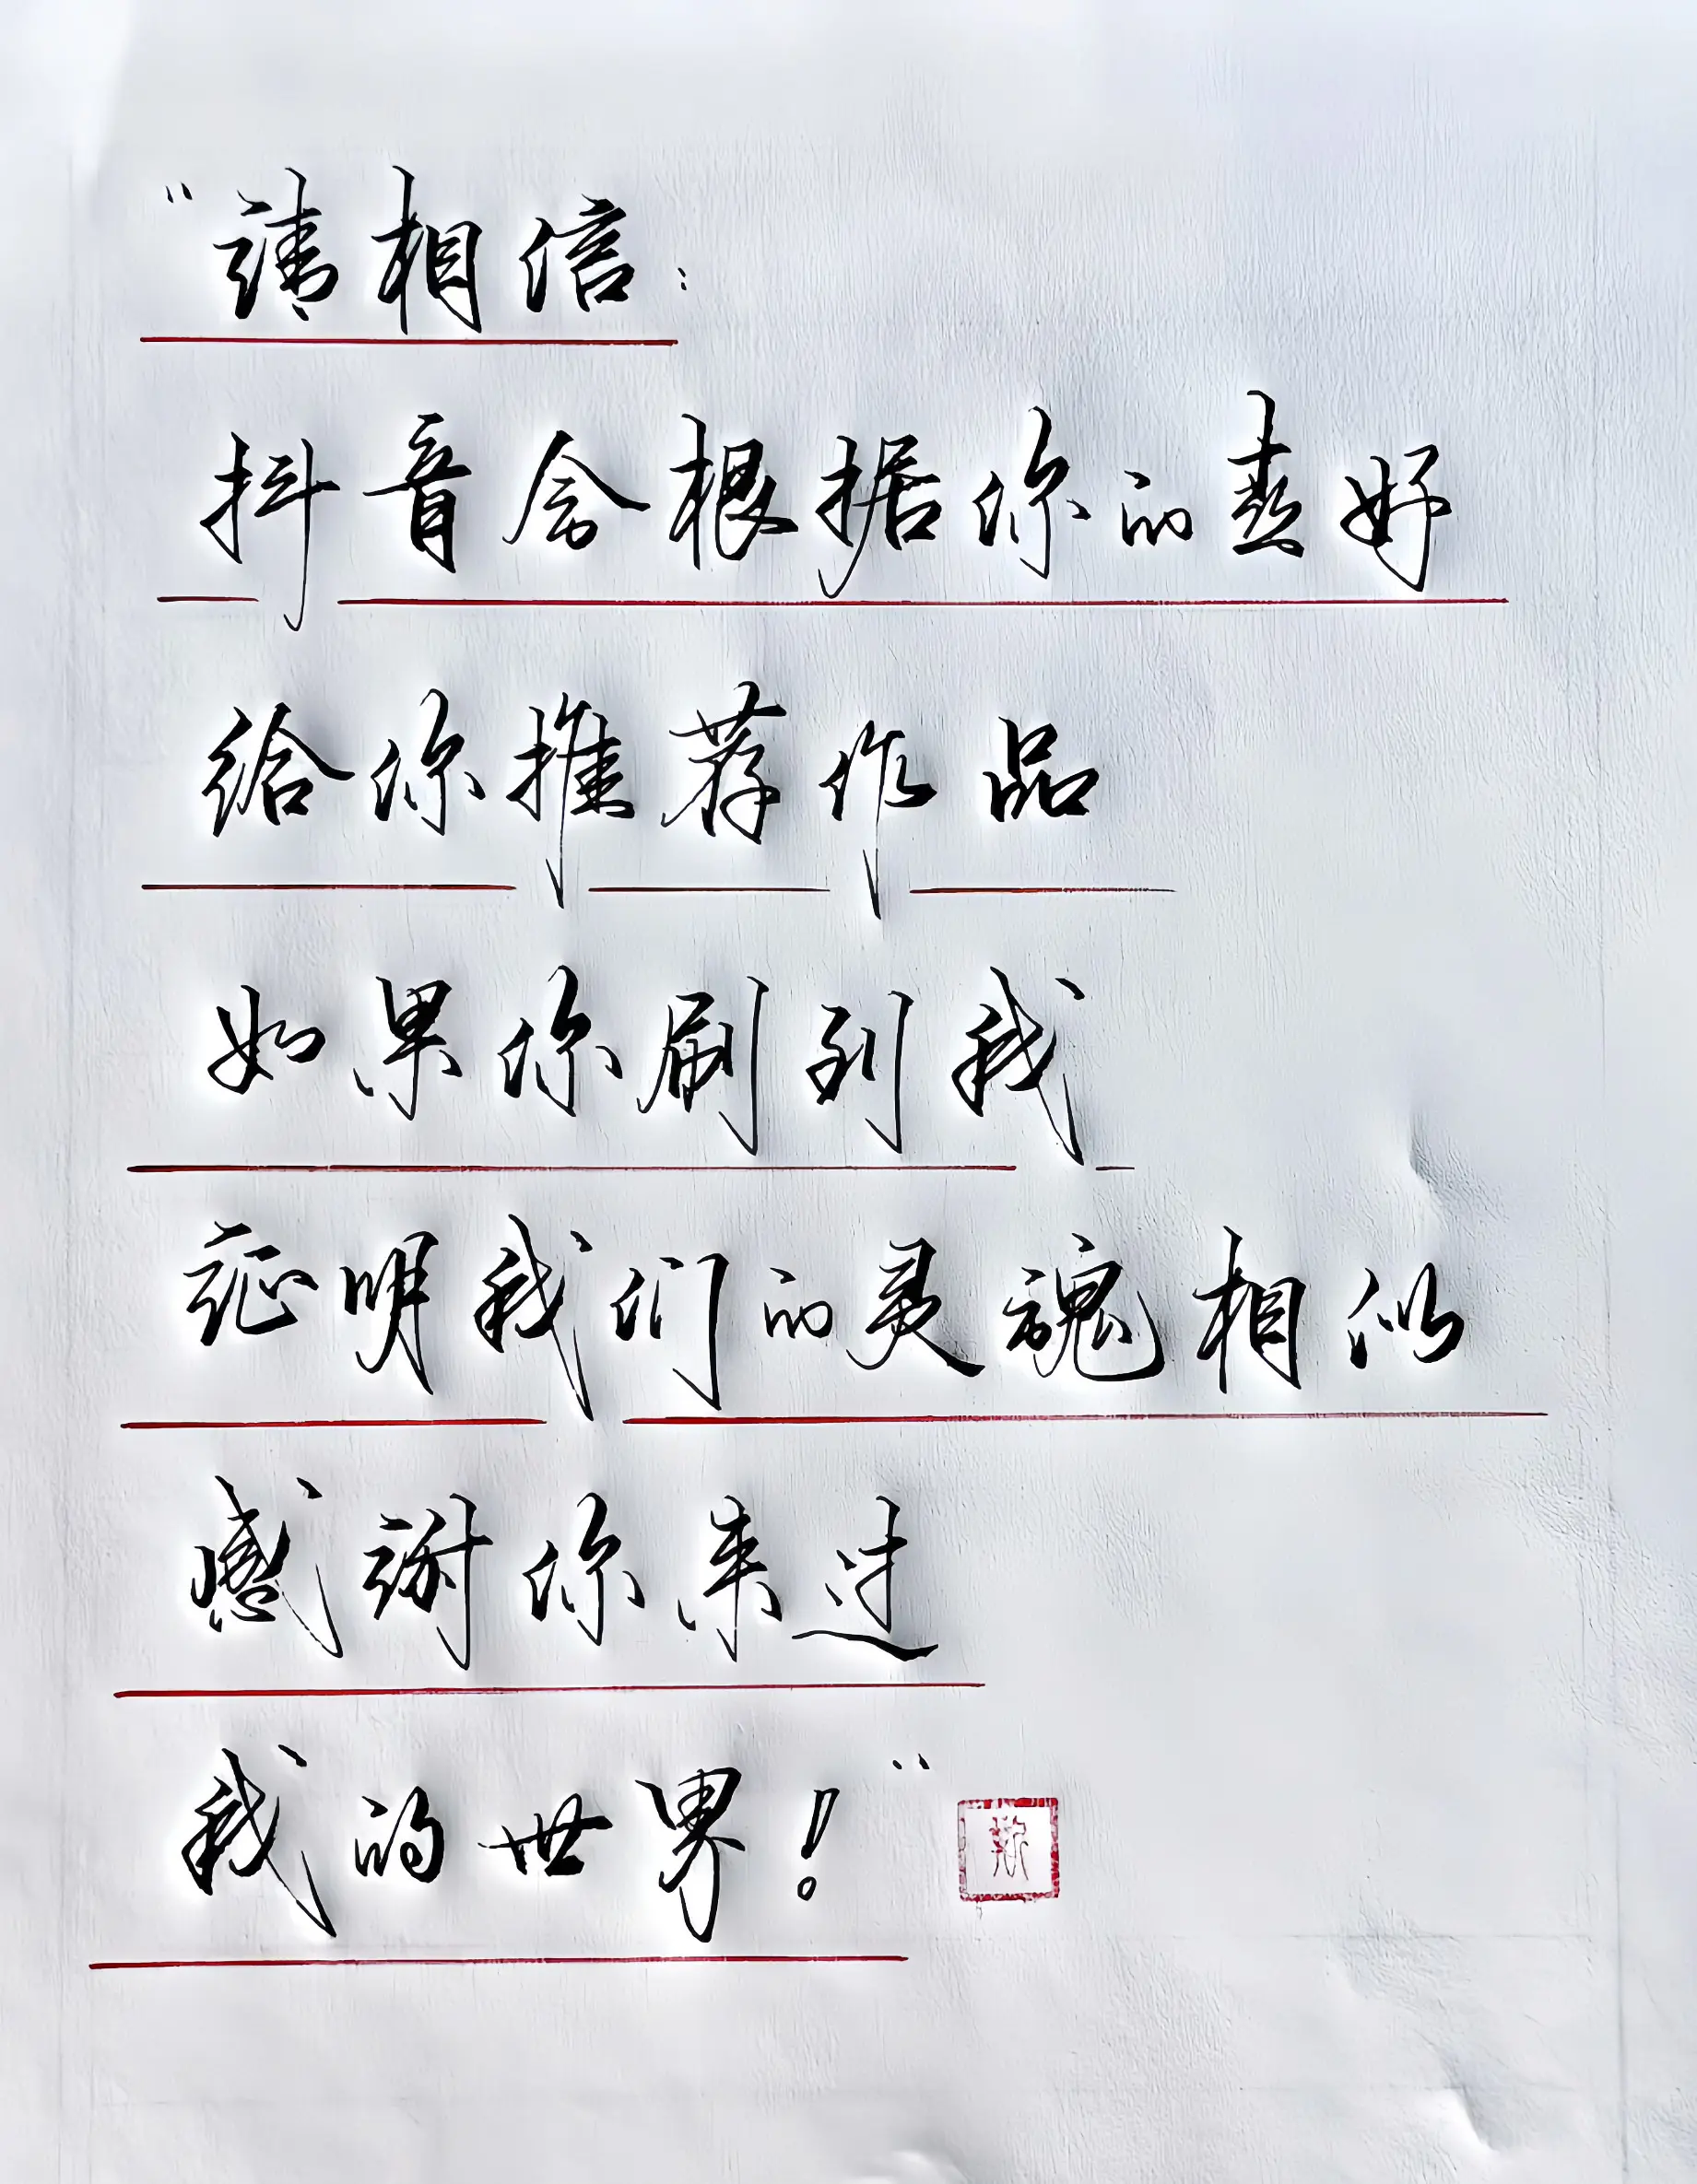 “请相信：
抖音会根据你的喜好
给你推荐作品
如果你刷到我
证明我们的灵魂相似
感谢你来过
我的世界！”